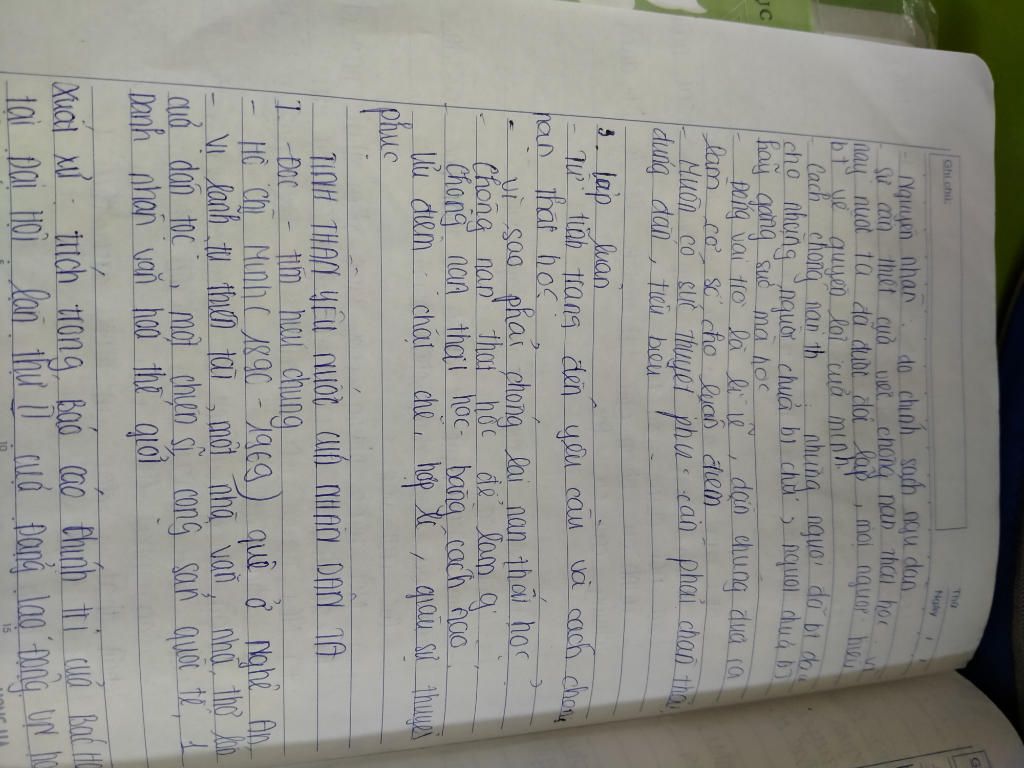 ỰC
Ghi chú:
Thứ
Ngày / /
- Nguyên nhân: do chính sách ngu dân
- Sự cần thiết của việc chống nạn thất học: vì
nay nước ta đã được độc lập, mọi người hiểu
biết về quyền lợi của mình
- Cách chống nạn th: những người đã bi dạy
cho những người chưa bi chữ, người chưa bi
hãy gắng sức mà học
- Đóng vai trò là lí lẽ, dẫn chứng đưa ra
làm cơ sở cho luận điểm
- Muốn có sức thuyết phục cần phải chân thật,
đúng đắn, tiêu biểu
3. Lập luận
- Từ tình trạng đến yêu cầu và cách chống
nạn thất học
- Vì sao phải chống lại nạn thất học?
Chống nạn thất học để làm gì
Chống nạn thất học bằng cách nào
Ưu điểm: chặt chẽ, hợp lí, giàu sự thuyết
phục
TINH THẦN YÊU NƯỚC CỦA NHÂN DÂN TA
I. Đọc - tìm hiểu chung
- Hồ Chí Minh (1890 - 1969) quê ở Nghệ An
- Vị lãnh tụ thiên tài, một nhà văn, nhà thơ lớn
của dân tộc, một chiến sĩ cộng sản quốc tế, 1
danh nhân văn hoá thế giới
Xuất xứ: trích trong Báo cáo Chính trị của Bác Hồ
tại Đại hội lần thứ II của Đảng lao động VN
5 10 15